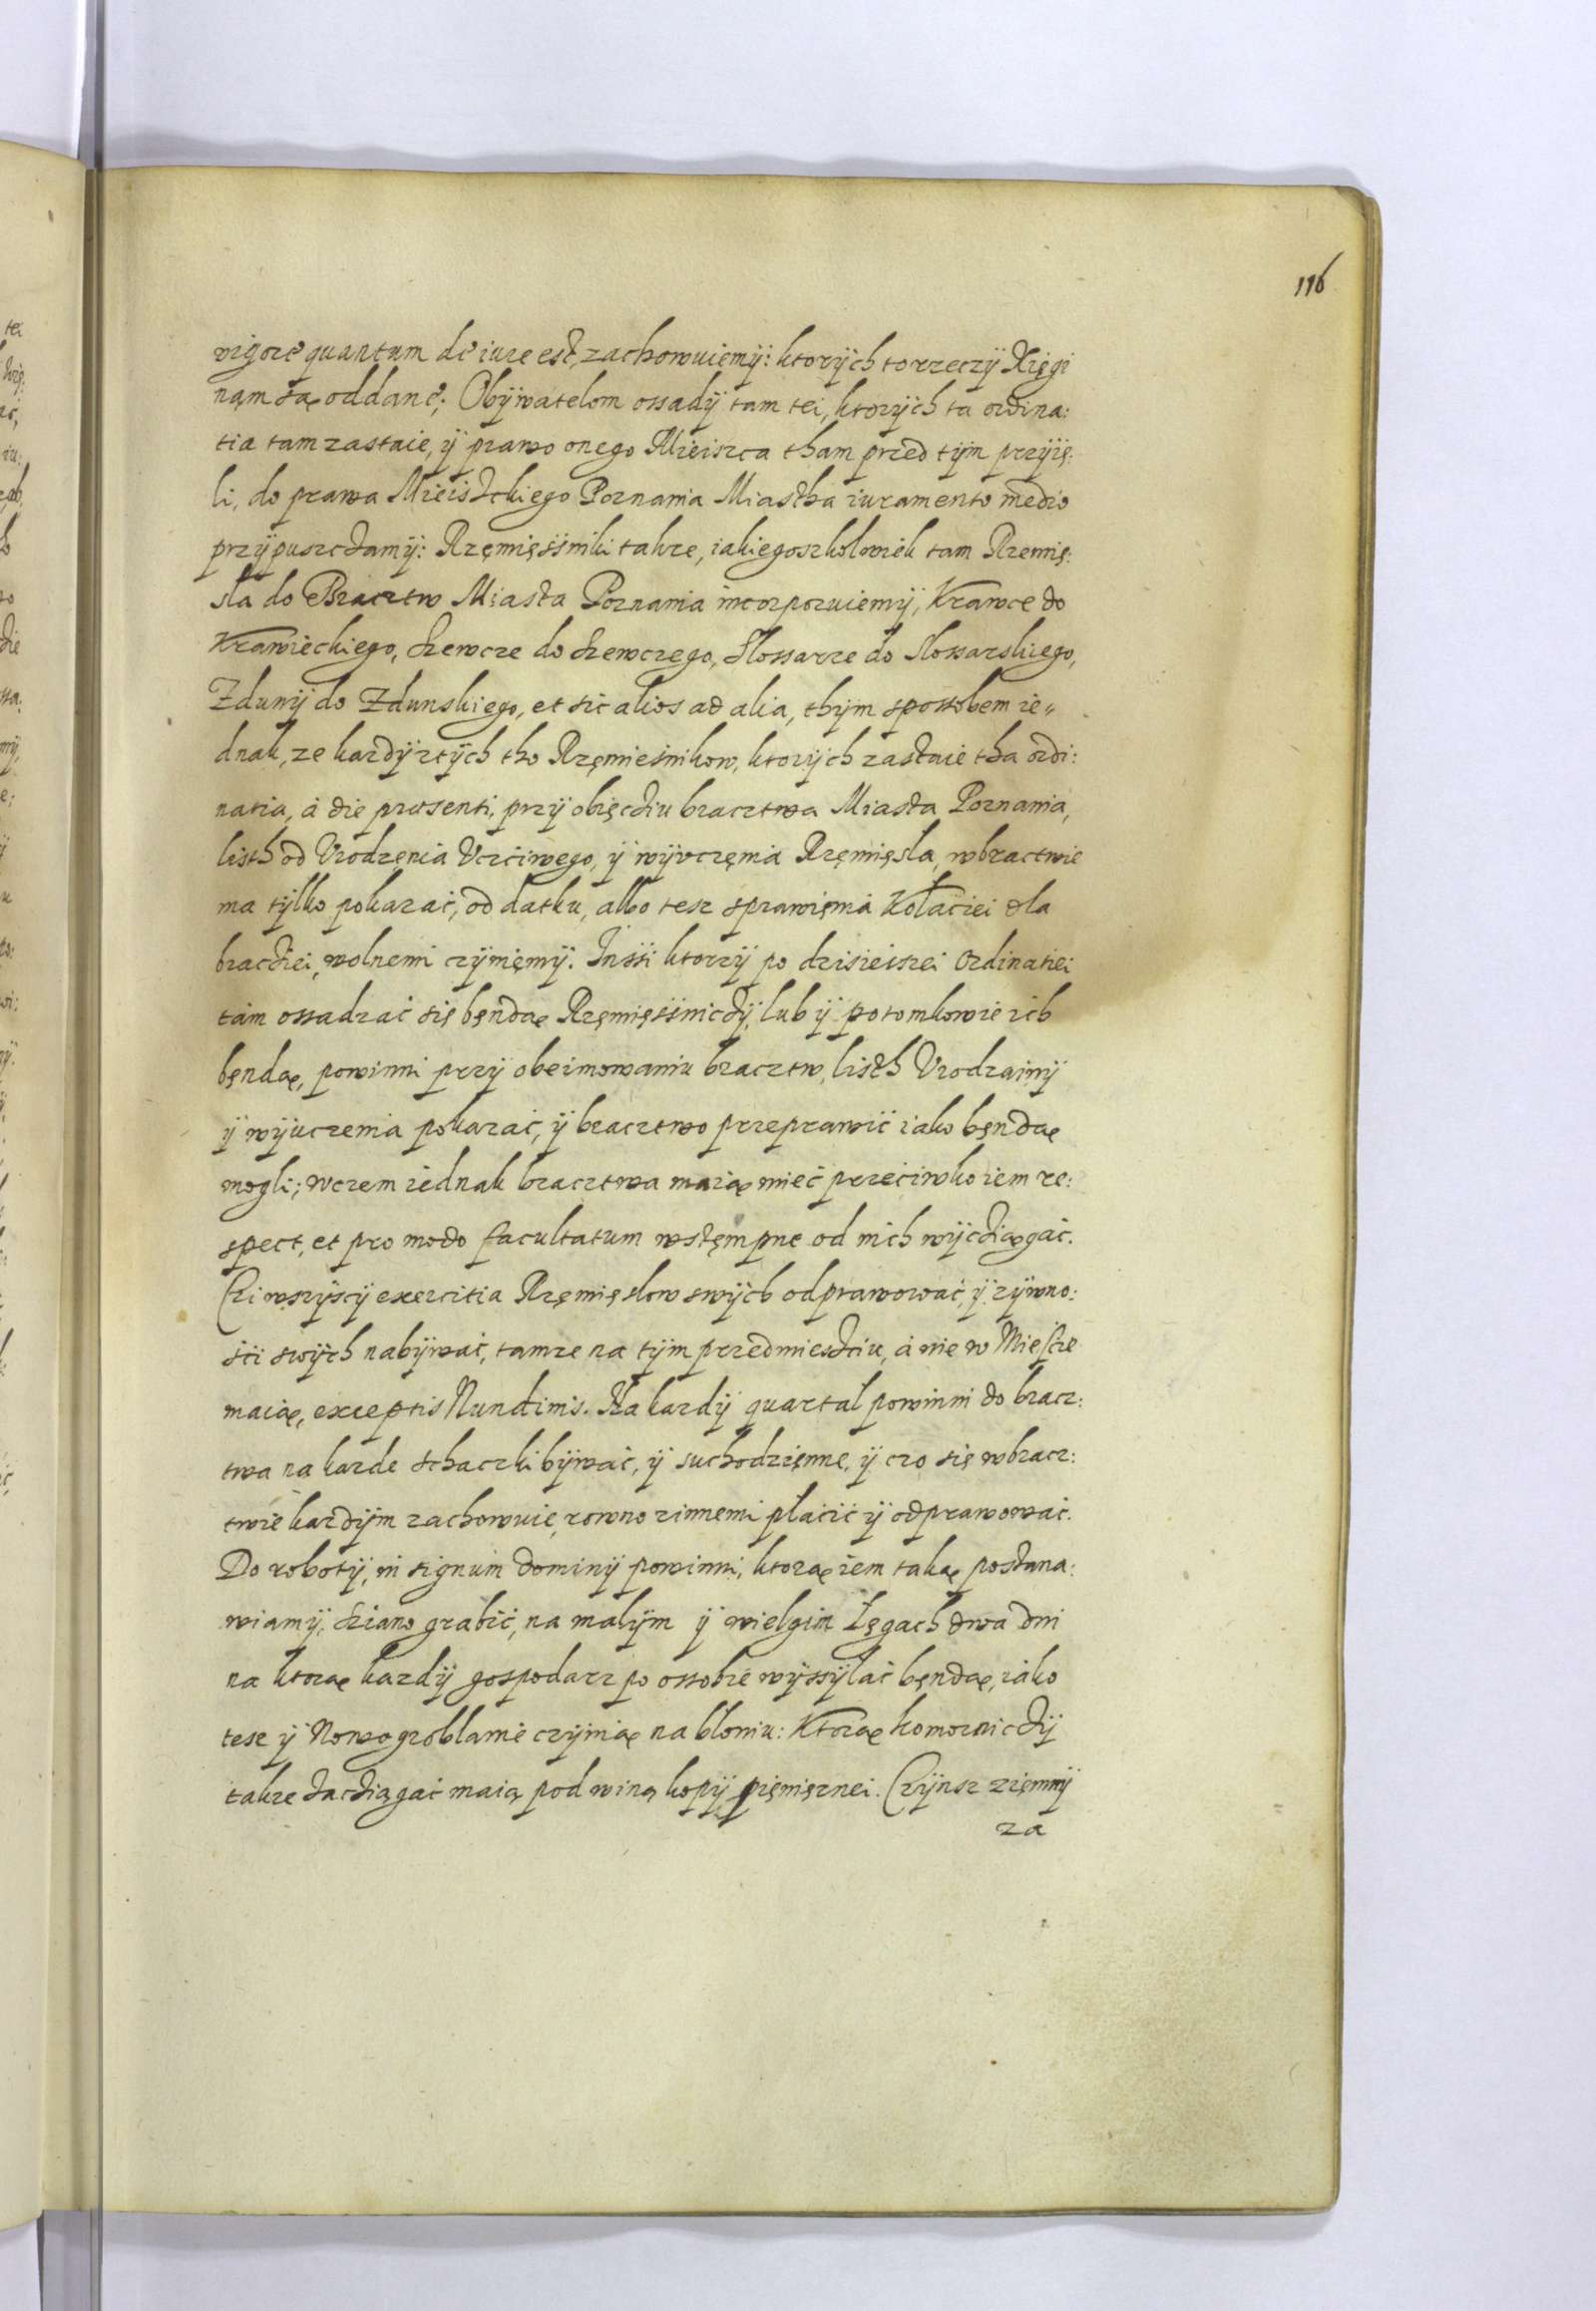 116
vigore quantum de iure est, zachowuiemÿ: ktorÿch to rzeczÿ Xięgi
nąm są oddane; Obÿwatelom ossadÿ tam tei, ktorÿch ta ordina:
tia tam zastaie, ÿ prawo onego Mieisca tham przed tÿm przÿię:
li, do prawa Mieistckiego Poznania Miastha iuramento medio
przÿpusczamÿ: Rzęmięssniki takze, iakiegoszkolowiek tam Rzemię:
sla do Bracztw Miasta Poznania incorporuiemÿ, Krawce do
Krawieckiego, szewcze do szewczego, slossarze do slossarskiego,
Zdunÿ do Zdunskiego, et sic alios ad alia, thÿm spossobem ie„
dnak, ze kazdÿ z tÿch tho Rzęmiesnikow, ktorÿch zastaie tha ordi:
natia, a die praesenti, przÿ obięciu bracztwa Miasta Poznania,
listh od Urodzenia Uczciwego, ÿ wÿuczęnia Rzęmięsla, w bractwie
ma tÿlko pokazać, od datku, albo tesz sprawięnia Kołaciei dla
braciei, wolnemi czÿnięmÿ. Inssi ktorzÿ po dzisieiszei Ordinatiei
tam ossadzać się bęndą Rzęmięssnicÿ, lub ÿ potomkowie ich
bęndą, powinni przÿ obeimowaniu bracztw, listh Urodzainÿ
ÿ wÿuczenia pokazać, ÿ bracztwo przeprawić iako bęndą
mogli; w czem iednak bracztwa maią mieć przeciwko iem re:
spect, et pro modo facultatum wstęmpne od nich wÿciągać.
Ci wszÿscÿ exercitia Rzęmięslow swÿch odprawować, ÿ zÿwno:
sci swÿch nabÿwać, tamze na tÿm przedmiesciu, a nie w Miescie
maią, exceptis Nundinis. Na kazdÿ quartal powinni do bracz:
twa na kazde schaczki bÿwać, ÿ suchodzięnne, ÿ czo się w bracz:
twie kazdÿm zachowuie, rowno z innemi płacić ÿ odprawować.
Do robotÿ, in signum dominÿ powinni, ktorą iem taką postana:
wiamÿ, siano grabić, na malÿm ÿ wielgim Lęgach dwa dni
na ktorą kazdÿ gospodarz po ossobie wÿssÿłać bęndą, iako
tesz ÿ Nowogroblanie czÿnią na błoniu: Ktorą komornicÿ
takze zaciągać maią pod winą kopÿ pięnięznei. Czÿnsz zięmnÿ
za